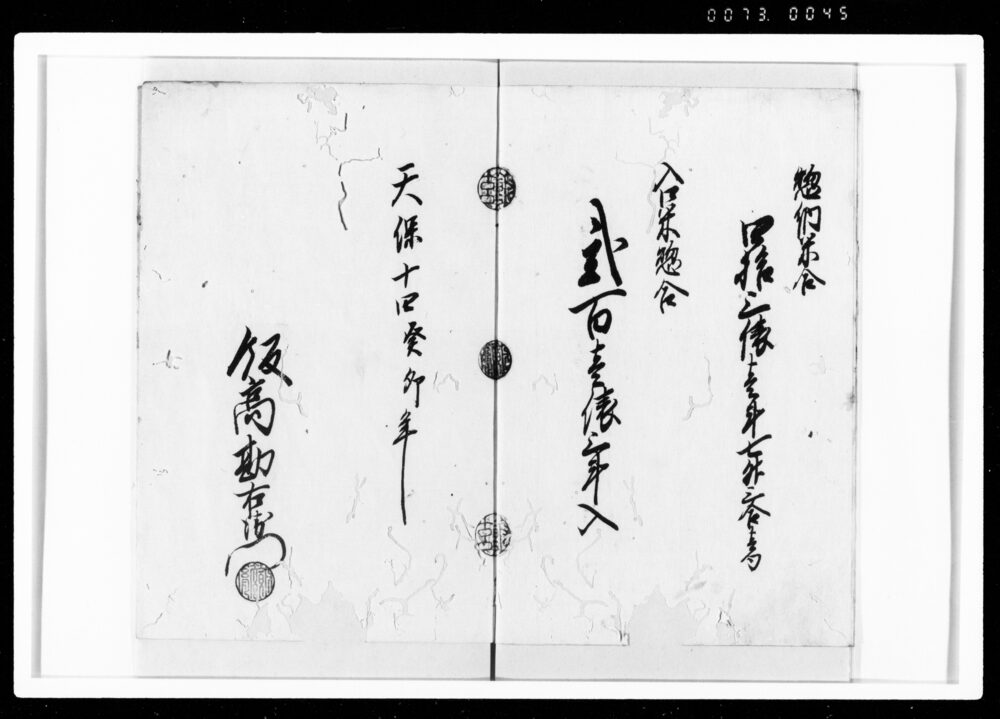 0073. 0045
惣〆米合
四拾三俵壱斗七升三合
入口米惣合
弐百壱俵三斗入
天保十四癸卯年
飯高勘右衛門